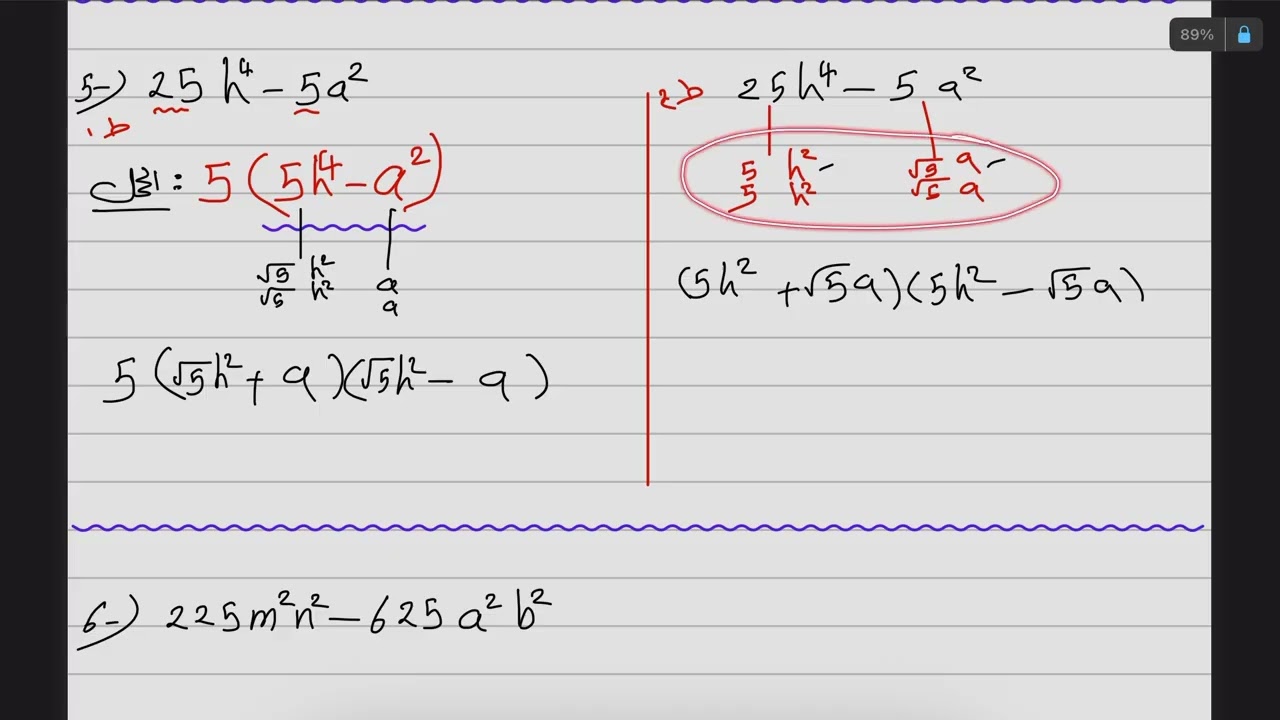 89%
5-) 25h⁴ - 5a²
ط1
الحل: 5(5h⁴ - a²)
√5 h² a
√5 h² a
5(√5h² + a)(√5h² - a)
ط2 25h⁴ - 5a²
5 h² √5 a
5 h² √5 a
(5h² + √5a)(5h² - √5a)
6-) 225m²n² - 625a²b²